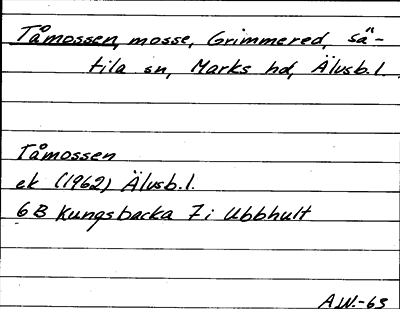 Tåmossen, mosse, Grimmered, Sä-
tila sn, Marks hd, Älvsb.l.
Tåmossen
ek (1962) Älvsb.l.
6B Kungsbacka 7i Ubbhult
A.W.-63